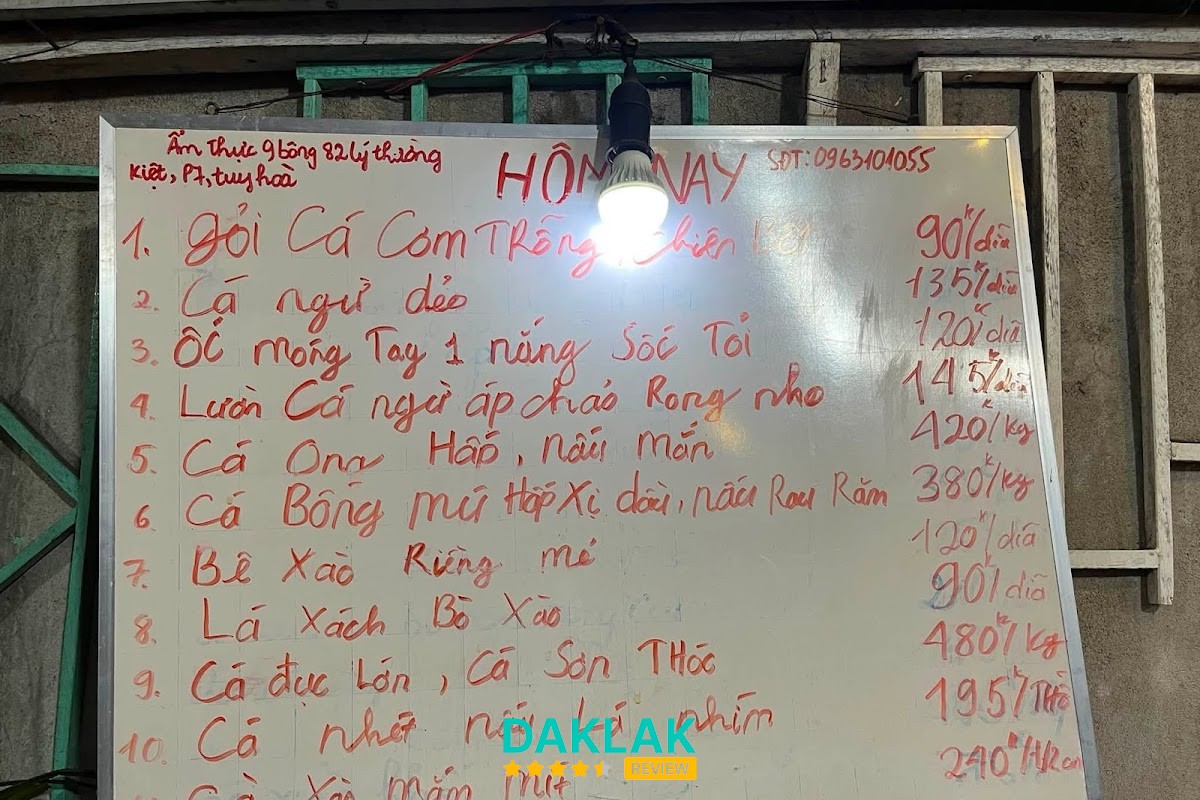 Ẩm Thực 9 bông 82 Lý thường
Kiệt, P7, tuy hoà
HÔM NAY
SĐT: 0963101055
1. gỏi Cá Cơm TRỗng, chiên Bột 90k/dĩa
2. Cá ngừ dẻo 135k/dĩa
3. ốc móng Tay 1 nắng Sốc Tỏi 120k/dĩa
4. Lườn Cá ngừ áp chảo Rong nho 145k/dĩa
5. Cá Ong Hấp, nấu mẳn 420k/kg
6. Cá Bống mú Hấp Xì dầu, nấu Rau Răm 380k/kg
7. Bê Xào Riềng mẻ 120k/dĩa
8. Lá Xách Bò Xào 90k/dĩa
9. Cá đục Lớn, Cá Sơn THóc 480k/kg
10. Cá nhét nấu Lá nhím 195k/THố
Xào mắm mít 240k/
DAKLAK
REVIEW